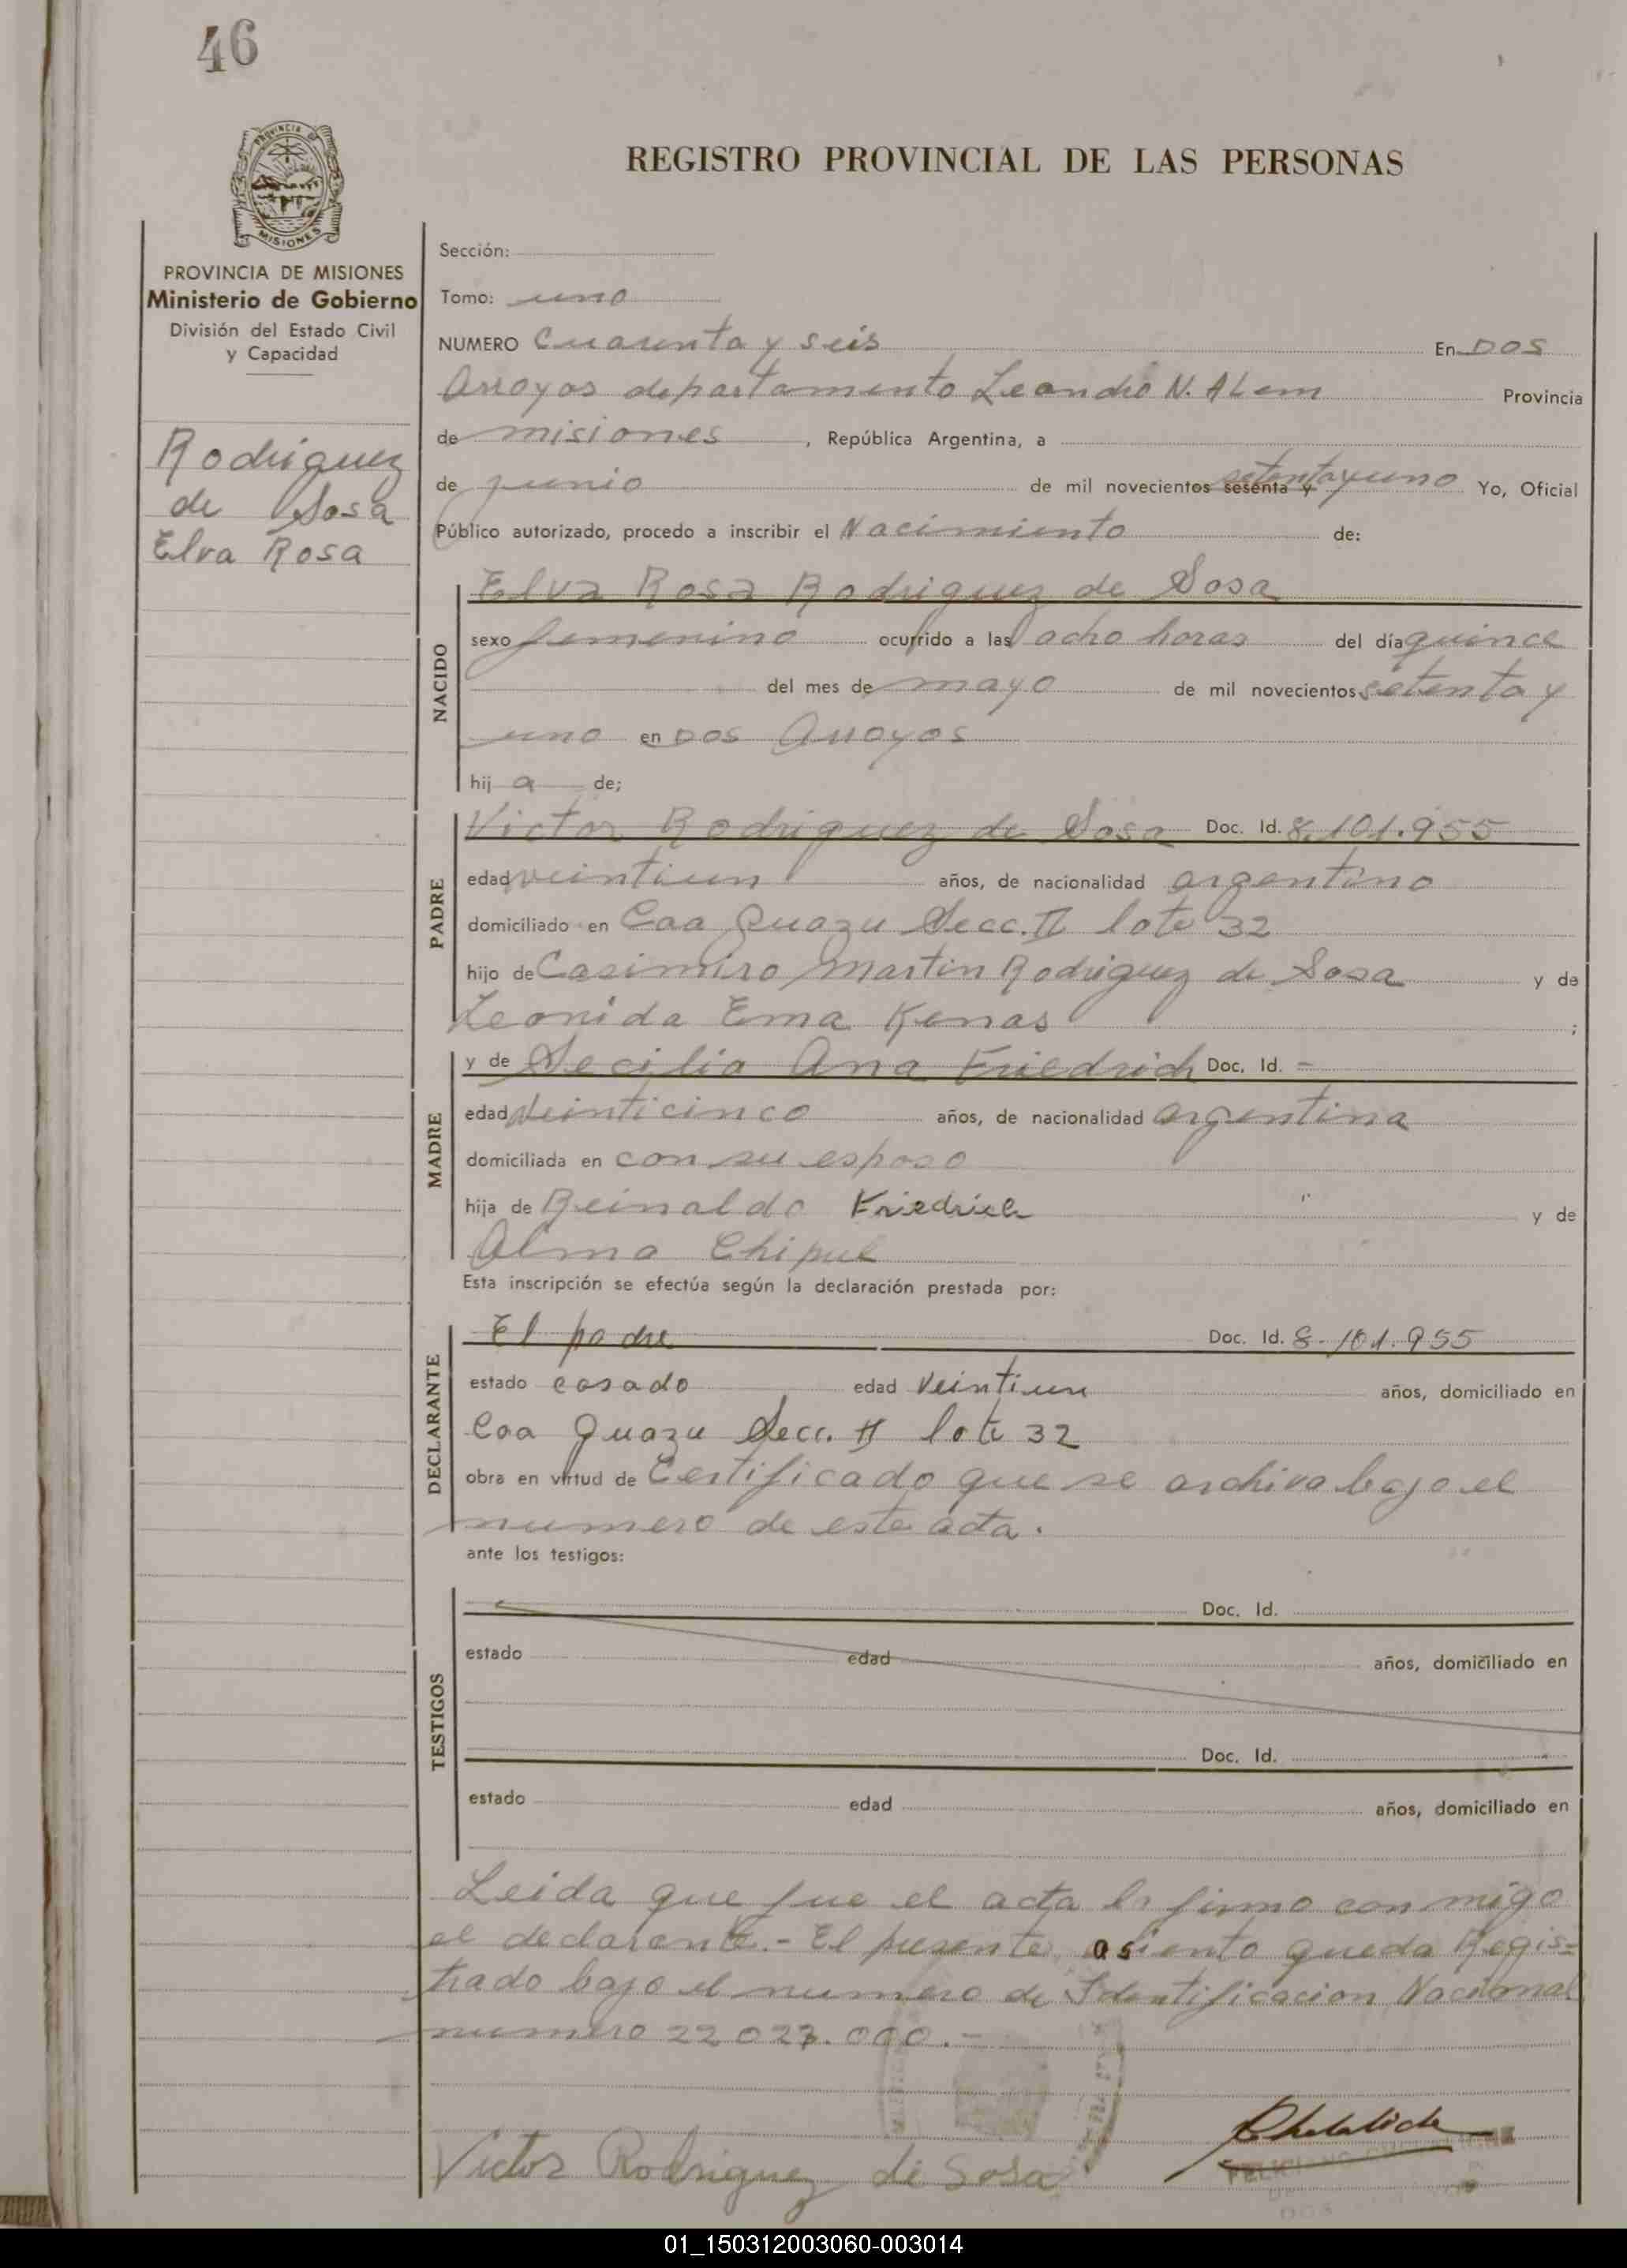 46
PROVINCIA DE
MISIONES
REGISTRO PROVINCIAL DE LAS PERSONAS
PROVINCIA DE MISIONES
Ministerio de Gobierno
División del Estado Civil
y Capacidad
Rodriguez
de Sosa
Elva Rosa
Sección:
Tomo: uno
NUMERO Cuarenta y seis En DOS
Arroyos departamento Leandro N. ALem Provincia
de misiones, República Argentina, a
de junio de mil novecientos sesenta y setenta y uno Yo, Oficial
Público autorizado, procedo a inscribir el Nacimiento de:
NACIDO
Elva Rosa Rodriguez de Sosa
sexo femenino ocurrido a las ocho horas del día quince
del mes de mayo de mil novecientos setenta y
uno en DOS Arroyos
hij a de;
PADRE
Victor Rodriguez de Sosa Doc. Id. 8.101.955
edad veintiun años, de nacionalidad argentino
domiciliado en Caa Guazu Secc. II lote 32
hijo de Casimiro Martin Rodriguez de Sosa y de
Leonida Ema Kenas ;
MADRE
y de Secilia Ana Friedrich Doc. Id. -
edad Veinticinco años, de nacionalidad argentina
domiciliada en con su esposo
hija de Reinaldo Friedrich y de
Alma Chipul
Esta inscripción se efectúa según la declaración prestada por:
DECLARANTE
El padre Doc. Id. 8.101.955
estado casado edad Veintiun años, domiciliado en
Caa Guazu Secc. II lote 32
obra en virtud de Certificado que se archiva bajo el
numero de este acta.
ante los testigos:
TESTIGOS
Doc. Id.
estado edad años, domiciliado en
Doc. Id.
estado edad años, domiciliado en
Leida que fue el acta la firmo con migo
el declarante.- El presente asiento queda Regis=
trado bajo el numero de Identificacion Nacional
numero 22 027.000.-
Victor Rodriguez de Sosa
01_150312003060-003014